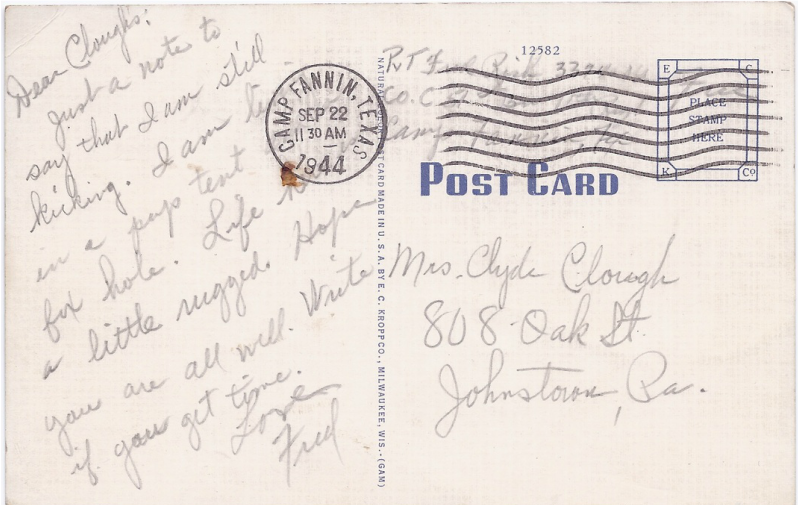 Dear Clough's:
Just a note to
say that I am still
kicking. I am
in a pup tent
fox hole. Life
a little rugged. Hope
you are all well. Write
if you get time.
Love
Fred
CAMP FANNIN, TEXAS
SEP 22
11 30 AM
1944
MADE IN U. S. A. BY E. C. KROPP CO., MILWAUKEE, WIS.-(GAM)
12582
Pvt Fred
Co. C
Camp Fannin, Tex
E C
PLACE
STAMP
HERE
K Co
POST CARD
Mrs. Clyde Clough
808 Oak St.
Johnstown, Pa.